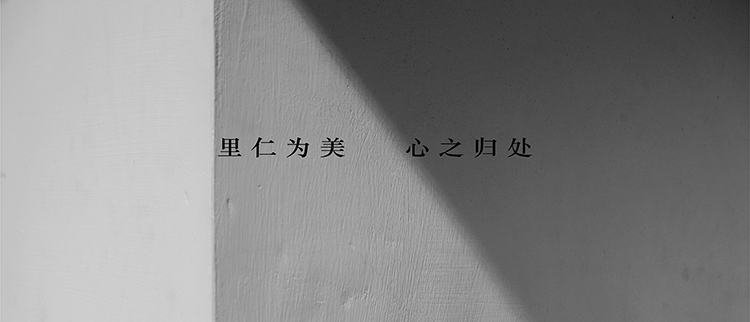 里仁为美 心之归处